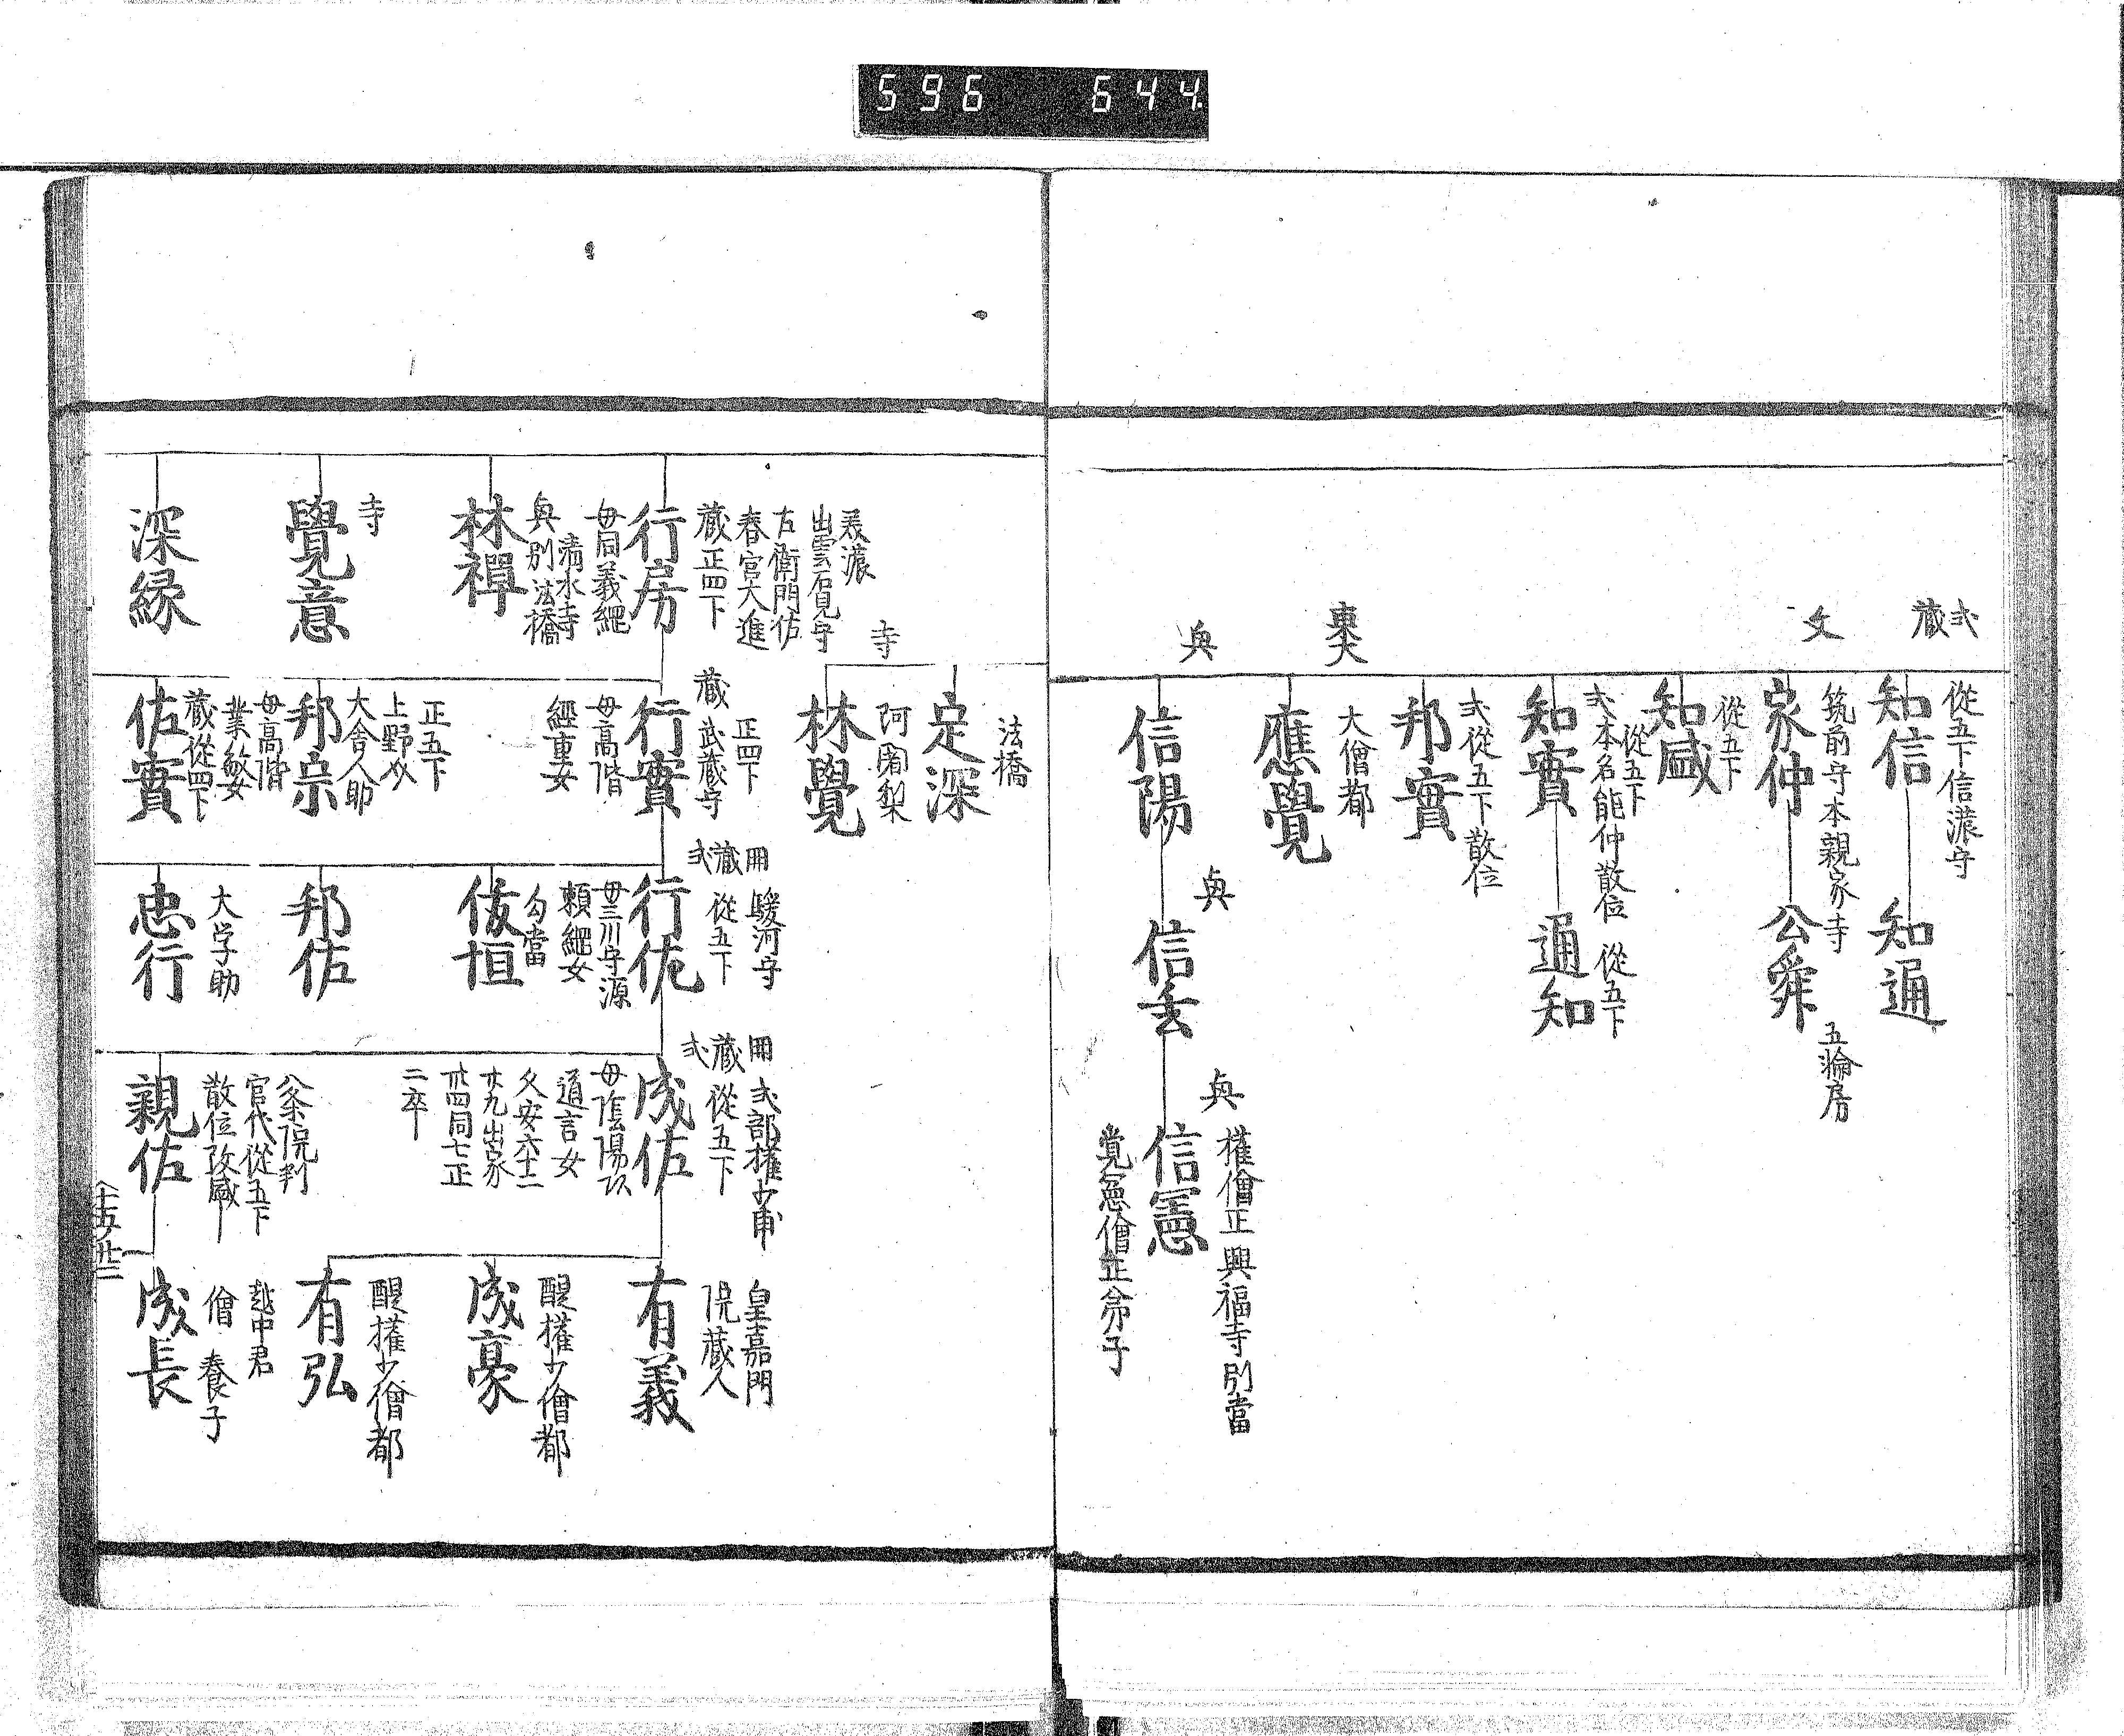 596 644
式
蔵
從五下信濃守
知信
知通
文
筑前守本親家
家仲
寺
公舜
五輪房
從五下
知盛
從五下
式本名能仲散位
知實
從五下
通知
式從五下散位
邦實
東大
大僧都
應覺
與
信陽
與
信玄
與
權僧正興福寺別當
信憲
覚憲僧正弟子
法橋
定深
寺
阿闍梨
林覺
美濃
出雲石見守
右衛門佐
春宮大進
蔵正四下
行房
母同義綱
清水寺
與別法橋
林禅
寺
覺意
深縁
正四下
蔵武蔵守
行實
母高階
經重女
正五下
上野介
大舎人助
邦宗
母高階
業敏女
蔵從四下
佐實
冊
蔵
式
駿河守
從五下
行佐
母三川守源
頼綱女
勾當
俊恒
邦佐
大学助
忠行
冊
蔵
式
式部權少甫
從五下
成佐
母陰陽頭
道言女
久安六十二
廿九出家
卅四同七正
二卒
判
官代從五下
散位改盛
親佐
皇嘉門
院蔵人
有義
醍權少僧都
成豪
醍權少僧都
有弘
越中君
僧 養子
成長
十五ノ卅二